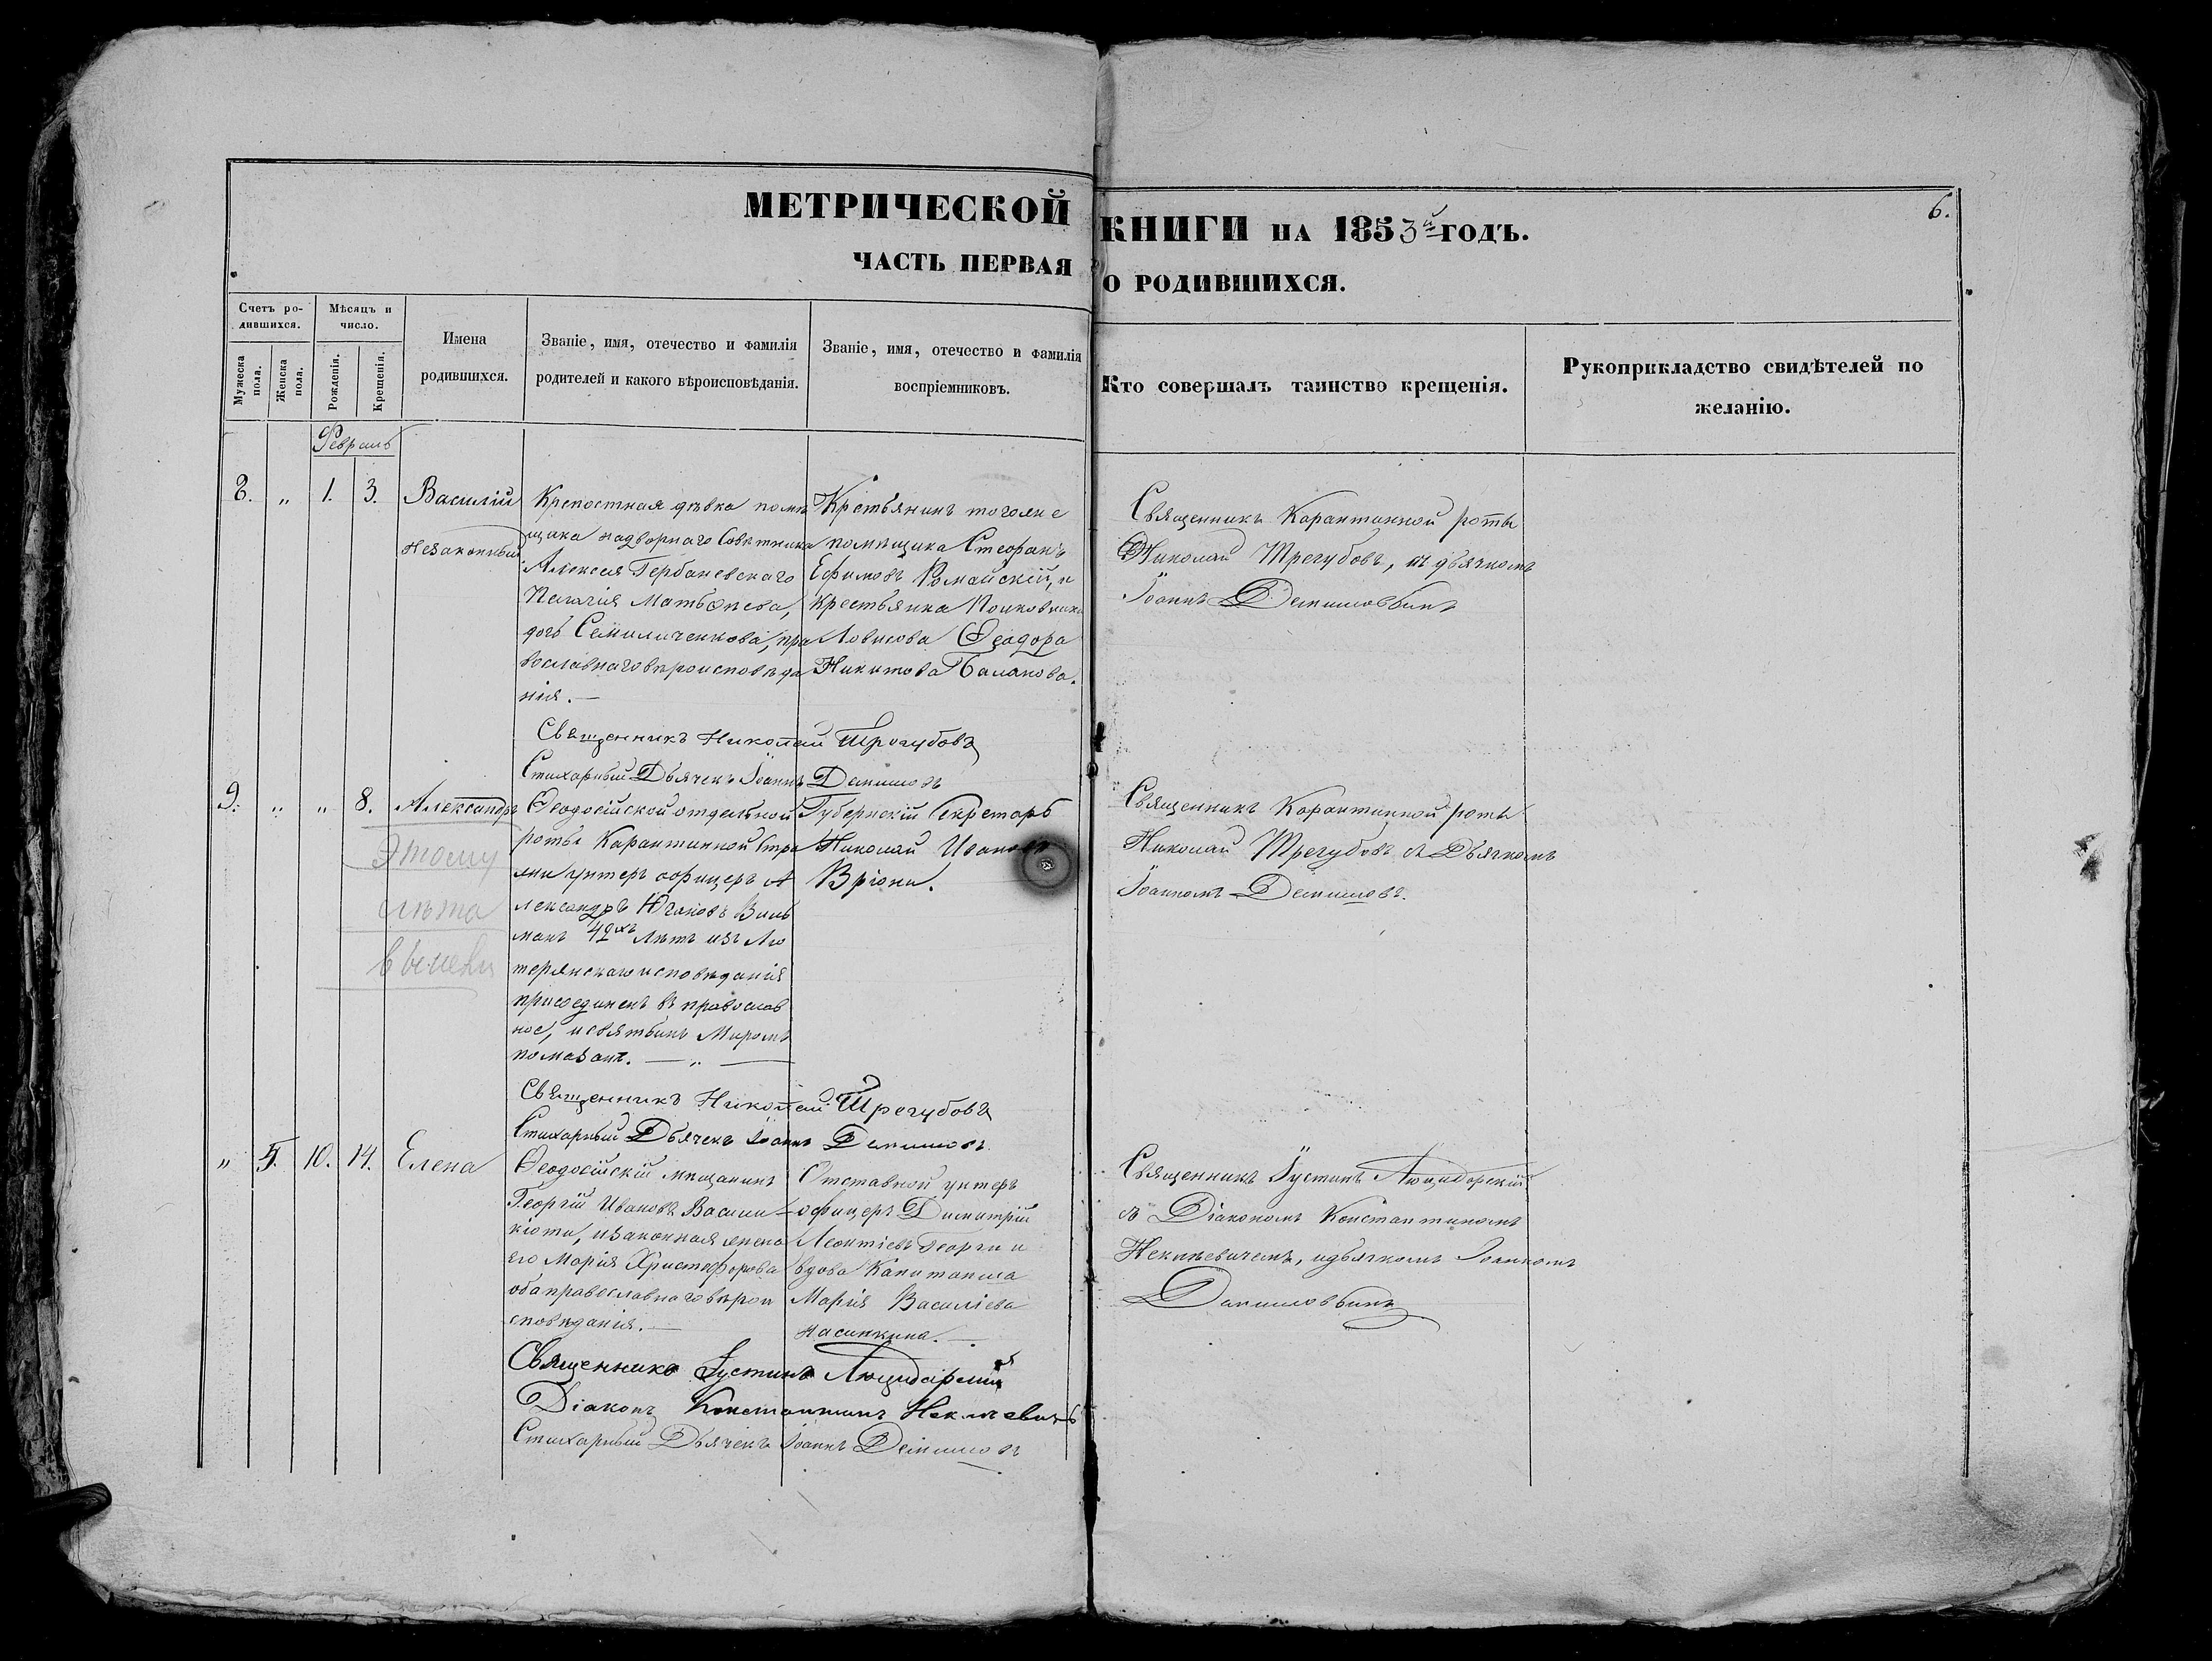 МЕТРИЧЕСКОЙ КНИГИ НА 1853й ГОДЪ.
6.
ЧАСТЬ ПЕРВАЯ О РОДИВШИХСЯ.
Счетъ ро-
дившихся.
Мужеска пола.
Женска пола.
Мѣсяцъ и
число.
Рожденія.
Крещенія.
Имена
родившихся.
Званіе, имя, отечество и фамилія
родителей и какого вѣроисповѣданія.
Званіе, имя, отечество и фамилія
воспріемниковъ.
Кто совершалъ таинство крещенія.
Рукоприкладство свидѣтелей по
желанію.
Февраль
8. „ 1. 3.
Василій
незаконный
Крепостная дѣвка помѣ
щика надворнаго Совѣтника
Алексея Гербаневскаго
Пелагія Матвѣнева,
дочь Семиличенкова, пра
вославнаго вѣроисповѣда
нія. —
Крестьянинъ тогоже
помѣщика Стефанъ
Ефимовъ Романскій, и
крестьянка Полковника
Ловисова Ѳеодора
Никитова Балакова.
Священникъ Карантинной роты
Николай Трегубовъ, съ дьячкомъ
Іоаннъ Демиловымъ
Священникъ Николай Трегубовъ
Стихарный Дьячекъ Іоаннъ Демиловъ
9. „ „ 8.
Александръ
Этому
лѣта
вычелъ
Ѳеодосійской отдельной
роты Карантинной Стра
жи унтеръ офицеръ А
лександръ Югановъ Виль
манъ 42хъ лѣтъ изъ Лю
терянскаго исповѣданія
присоединенъ въ православ
ное, и святымъ Миромъ
помазанъ. — „ —
Губернскій Секретарь
Николай Ивановъ
Вріони.
Священникъ Карантинной роты
Николай Трегубовъ съ Дьячкомъ
Іоанномъ Демиловъ.
Священникъ Николай Трегубовъ
Стихарный Дьячекъ Іоаннъ Демиловъ
„ 5. 10. 14.
Елена
Ѳеодосійскій мѣщанинъ
Георгій Ивановъ Васили
кіоти, и законная жена
его Марія Христофорова
оба православнаго вѣрои
сповѣданія. —
Отставной унтеръ
офицеръ Димитрій
Леонтіевъ Георги и
вдова Капитанша
Марія Василіева
Насинкина. —
Священникъ Іустинъ Люцидарскій
съ Діакономъ Константиномъ
Неклѣевичемъ, и дьячкомъ Іоанномъ
Демиловымъ
Священникъ Іустинъ Люцидарскій
Діаконъ Константинъ Неклѣевичъ
Стихарный Дьячекъ Іоаннъ Демиловъ